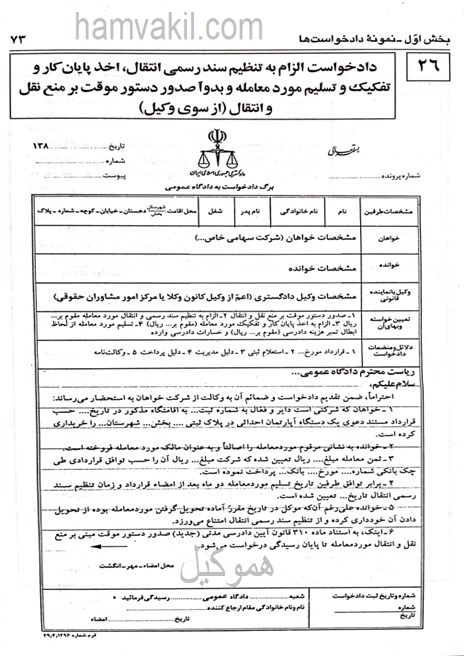 hamvakil.com
بخش اوّل ـ نمونهٔ دادخواست‌ها
۷۳
۲۶
دادخواست الزام به تنظیم سند رسمی انتقال، اخذ پایان کار و
تفکیک و تسلیم مورد معامله و بدواً صدور دستور موقت بر منع نقل
و انتقال (از سوی وکیل)
بسمه تعالی
تاریخ ........ ۱۳۸
شماره ........
پیوست ........
شماره پرونده ........
دادگستری جمهوری اسلامی ایران
برگ دادخواست به دادگاه عمومی
مشخصات طرفین
نام
نام خانوادگی
نام پدر
شغل
محل اقامت شهرستان بخش دهستان ـ خیابان ـ کوچه ـ شماره ـ پلاک
خواهان
مشخصات خواهان (شرکت سهامی خاص...)
خوانده
مشخصات خوانده
وکیل یا نماینده قانونی
مشخصات وکیل دادگستری (اعم از وکیل کانون وکلا یا مرکز امور مشاوران حقوقی)
تعیین خواسته وبهای آن
۱ـ صدور دستور موقت بر منع نقل و انتقال ۲ـ الزام به تنظیم سند رسمی و انتقال مورد معامله مقوم بر...
ریال ۳ـ الزام به اخذ پایان کار و تفکیک مورد معامله (مقوم بر... ریال) ۴ـ تسلیم مورد معامله از لحاظ
ابطال تمبر هزینه دادرسی (مقوم بر... ریال) و خسارات دادرسی وارده
دلائل ومنضمات دادخواست
۱ـ قرارداد مورخ... ۲ـ استعلام ثبتی ۳ـ دلیل مدیریت ۴ـ دلیل پرداخت ۵ـ وکالت‌نامه
ریاست محترم دادگاه عمومی...
سلام علیکم،
احتراماً، ضمن تقدیم دادخواست و ضمائم آن به وکالت از شرکت خواهان به استحضار می‌رساند:
۱ـ خواهان که شرکتی است دایر و فعّال به شماره ثبت... به اقامتگاه مذکور در تاریخ.... حسب
قرارداد مستند دعوی یک دستگاه آپارتمان احداثی در پلاک ثبتی .... بخش... شهرستان... را خریداری
کرده است.
۲ـ خوانده به نشانی مرقوم موردمعامله را اصالتاً و به عنوان مالک مورد معامله فروخته است.
۳ـ ثمن معامله مبلغ.... ریال تعیین شده که شرکت مبلغ... ریال آن را حسب توافق قراردادی طی
چک بانکی شماره.... مورخ.... بانک... پرداخت نموده است.
۴ـ برابر توافق طرفین تاریخ تسلیم موردمعامله دو ماه بعد از امضاء قرارداد و زمان تنظیم سند
رسمی انتقال تاریخ... تعیین شده است.
۵ـ خوانده علی‌رغم آن‌که موکل در تاریخ مقرر آماده تحویل گرفتن موردمعامله بوده از تحویل
دادن آن خودداری کرده و از تنظیم سند رسمی انتقال امتناع می‌ورزد.
۶ـ اینک، به استناد ماده ۳۱۰ قانون آیین دادرسی مدنی (جدید) صدور دستور موقت مبنی بر منع
نقل و انتقال موردمعامله تا پایان رسیدگی درخواست می‌شود.
محل امضاء ـ مهر ـ انگشت
هموکیل
شماره وتاریخ ثبت دادخواست
شماره
تاریخ
شعبه ........ دادگاه عمومی ........ رسیدگی فرمائید
نام ونام خانوادگی مقام ارجاع کننده ........
تاریخ ........ امضاء
فرم شماره ۴۹/۲،۱۲۹۶